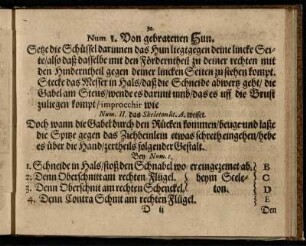 30.
Num 1. Von gebratenen Hun.
Setzt die Schüssel darunnen das Hun liegt gegen deine lincke Sei-
te/ also daß dasselbe mit den Fördertheil zu deiner rechten mit
den Hynderntheil gegen deiner lincken Seiten zu stehen kompt.
Stecke das Messer in Hals/ daß die Schneide abwerg gehe/ die
Gabel am Steus/ wende es darmit umb/ das es uff die Brust
zuliegen kompt/ improcchir wie
Num. II. das Skeletmäs. A. weiset.
Doch wann die Gabel durch den Rücken kommen/ beuge und laße
die Spitz gegen das Ziehbeinlein etwas schreth eingehen/ hebe
es über die Hand/ zertheils folgender Gestalt.
Bey Num. 1.
1. Schneide in Hals/ stoß den Schnabel wo er eingezemet ab. B
2. Denn Oberschnitt am rechten Flügel. beym Scele- C
3. Denn Oberschnit am rechten Schenckel. ton. D
4. Denn Contra Schnit am rechten Flügel. E
D ij Den